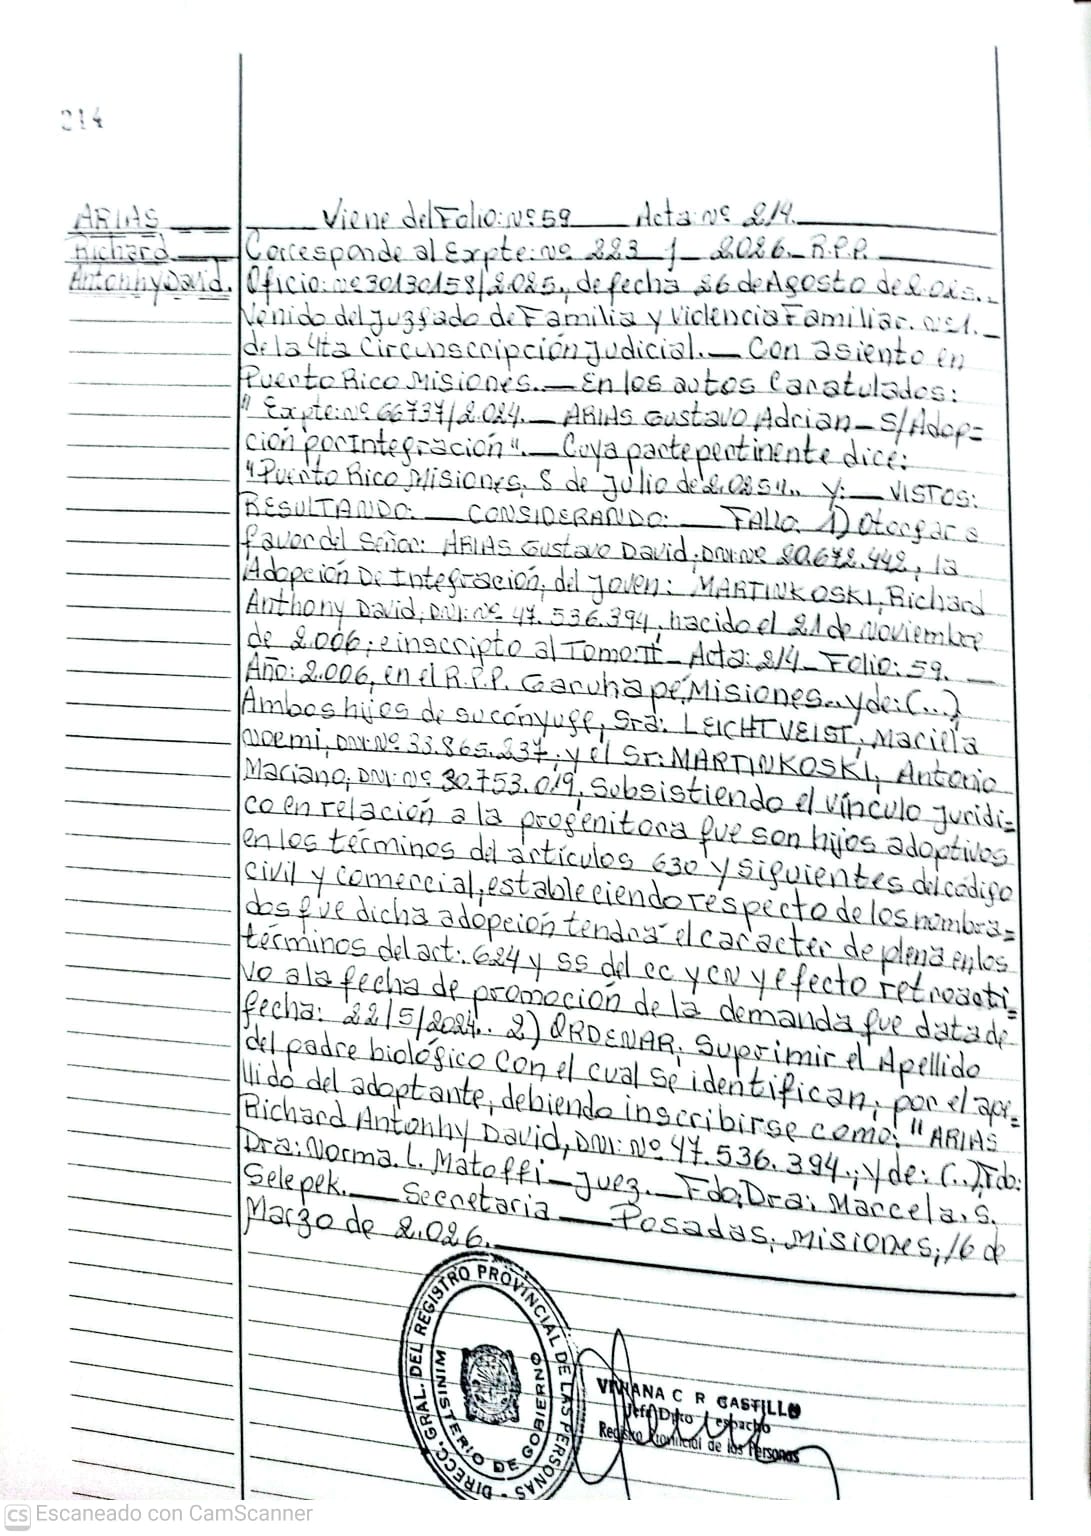 214
ARIAS
Richard
Antonhy David.
Viene del Folio: Nº 59 Acta: Nº 214.
Corresponde al Expte: Nº 223 J 2026. R.P.P.
Oficio: Nº 30130158/2.025., de fecha 26 de Agosto de 2.025..
Venido del Juzgado de Familia y Violencia Familiar. Nº 1.
de la 4ta Circunscripción Judicial. Con asiento en
Puerto Rico Misiones. En los autos Caratulados:
" Expte: Nº 66737/2.024. ARIAS Gustavo Adrian S/Adop=
ción por Integración ". Cuya parte pertinente dice:
"Puerto Rico Misiones. 8 de Julio de 2.025".. Y: VISTOS:
RESULTANDO: CONSIDERANDO: FALLO. 1) Otorgar a
favor del Señor: ARIAS Gustavo David; DNI: Nº 20.672.442, la
Adopción De Integración, del joven: MARTINKOSKI, Richard
Anthony David, DNI: Nº 47.536.394, nacido el 21 de Noviembre
de 2.006; e inscripto al Tomo: II Acta: 214 Folio: 59.
Año: 2.006, en el R.P.P. Garuhapé, Misiones.. y de: (..)
Ambos hijos de su cónyuge, Sra: LEICHTVEIST, Mariela
Noemi, DNI: Nº 33.865.237; y el Sr: MARTINKOSKI, Antonio
Mariano, DNI: Nº 30.753.019, Subsistiendo el vínculo juridi=
co en relación a la progenitora que son hijos adoptivos
en los términos del artículos 630 y siguientes del código
civil y comercial, estableciendo respecto de los nombra=
dos que dicha adopción tendrá el carácter de plena en los
términos del art.: 624 y ss del cc y CN y efecto retroacti=
vo a la fecha de promoción de la demanda que data de
fecha: 22/5/2024.. 2) ORDENAR, Suprimir el Apellido
del padre biológico con el cual se identifican, por el ape=
llido del adoptante, debiendo inscribirse como: "ARIAS
Richard Antonhy David, DNI: Nº 47.536.394.; y de: (..) Fdo:
Dra: Norma. L. Matoffi Juez. Fdo: Dra: Marcela. S.
Selepek. Secretaria Posadas, Misiones, 16 de
Marzo de 2.026.
DIRECC. GRAL. DEL REGISTRO PROVINCIAL DE LAS PERSONAS
MINISTERIO DE GOBIERNO
VIVIANA C R CASTILLO
Jefe Dpto Despacho
Registro Provincial de las Personas
CS Escaneado con CamScanner